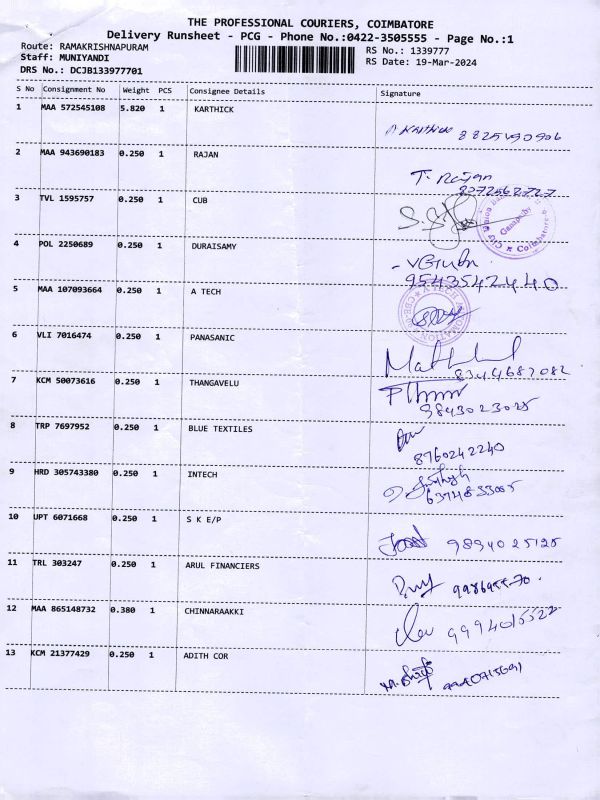 THE PROFESSIONAL COURIERS, COIMBATORE
Delivery Runsheet - PCG - Phone No.:0422-3505555 - Page No.:1
Route: RAMAKRISHNAPURAM
RS No.: 1339777
Staff: MUNIYANDI
RS Date: 19-Mar-2024
DRS No.: DCJB133977701
S No Consignment No Weight PCS Consignee Details Signature
1 MAA 572545108 5.820 1 KARTHICK
2 MAA 943690183 0.250 1 RAJAN
T. Rajan
8072562727
3 TVL 1595757 0.250 1 CUB
4 POL 2250689 0.250 1 DURAISAMY
9543542440
5 MAA 107093664 0.250 1 A TECH
6 VLI 7016474 0.250 1 PANASANIC
8344687082
7 KCM 50073616 0.250 1 THANGAVELU
9843023025
8 TRP 7697952 0.250 1 BLUE TEXTILES
8760242240
9 HRD 305743380 0.250 1 INTECH
10 UPT 6071668 0.250 1 S K E/P
9894025125
11 TRL 303247 0.250 1 ARUL FINANCIERS
12 MAA 865148732 0.380 1 CHINNARAAKKI
9994015522
13 KCM 21377429 0.250 1 ADITH COR